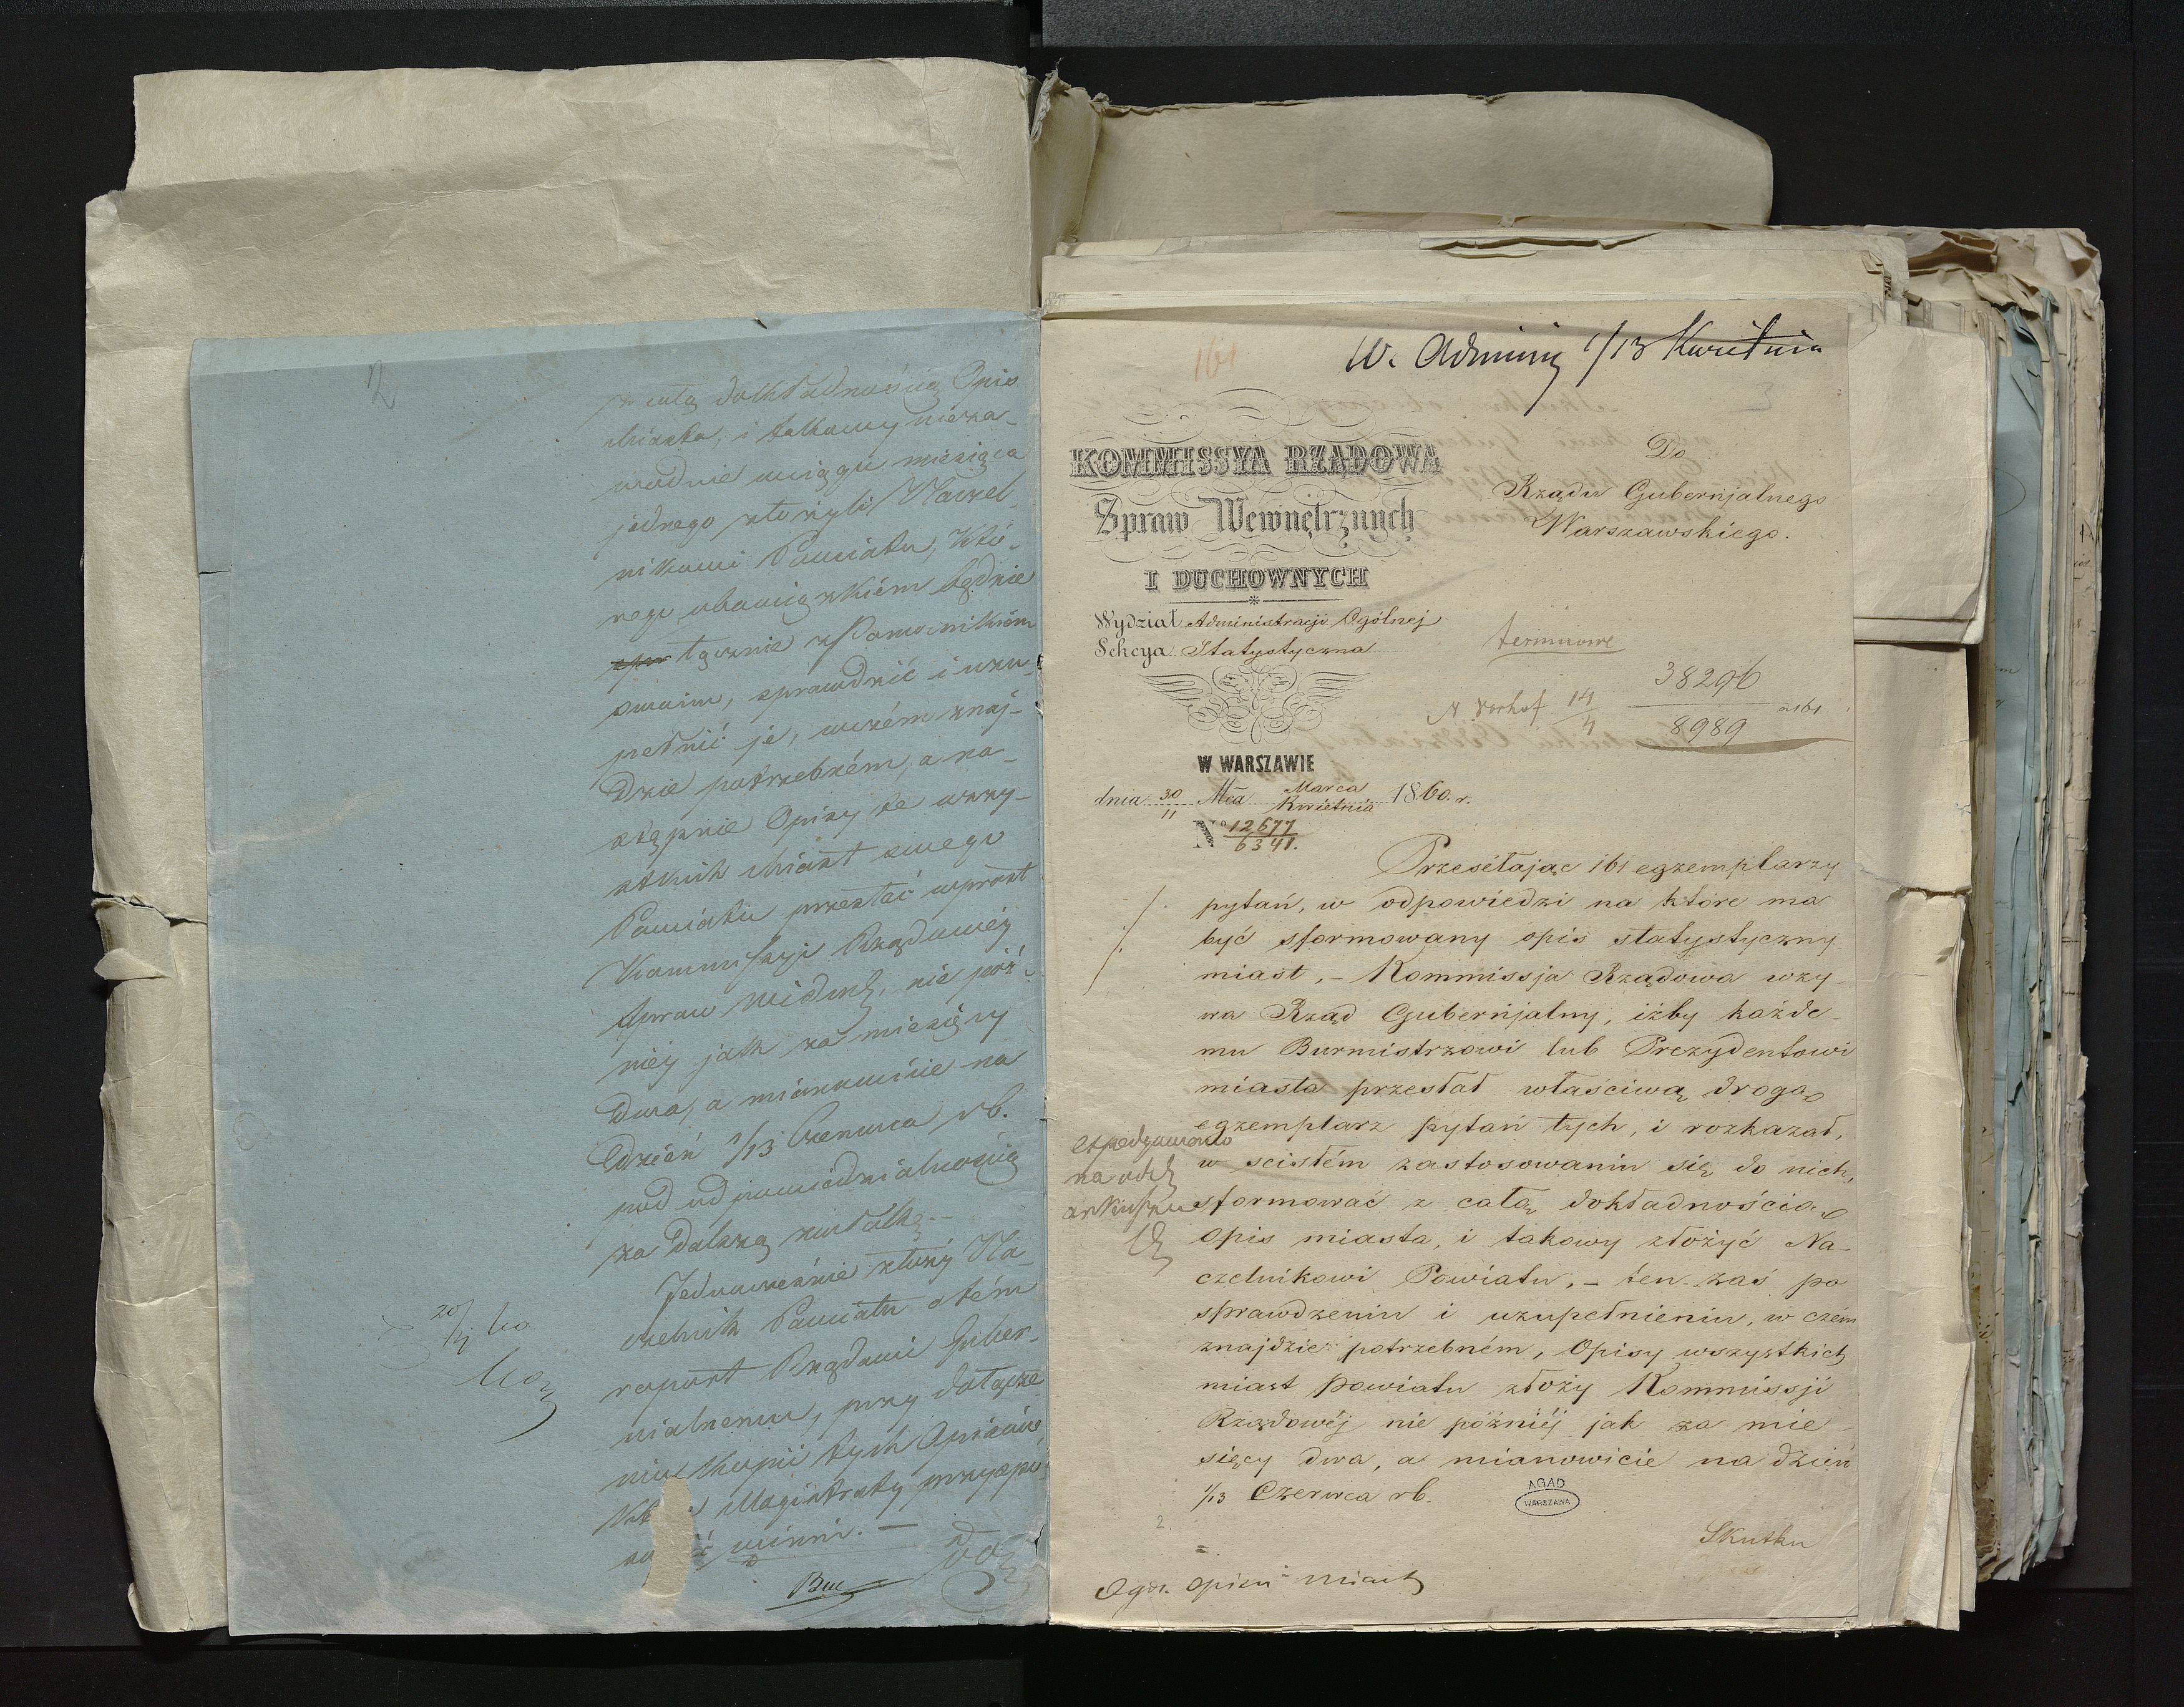 2
z całą dokładnością Opis
Miasta, i takowy nieza-
wodnie wciągu miesiąca
jednego złożyli Naczel-
nikowi Powiatu, któ-
rego obowiązkiem będzie
łącznie z Pomocnikiem
swoim, sprawdzić i uzu-
pełnić je, wczém znaj-
dzie potrzebném, a na-
stępnie Opisy ze wszy-
stkich Miast swego
Powiatu przesłać wprost
Kommissyi Rządowéy
Spraw nie póź-
niéy jak za miesięcy
dwa, a mianowicie na
dzień 1/13 Czerwca rb.
pod odpowiedzialnością
za dalszą zwłokę.—
Jednocześnie złoży Na-
czelnik Powiatu o tém
raport Rządowi Guber-
nialnemu, przy dołącze-
niu kopii tych Opisów,
Magistraty przyspo-
winni.—
20/4 60
161
W. Adminis 1/13 Kwietnia
KOMMISSYA RZĄDOWA
Spraw Wewnętrznych
I DUCHOWNYCH
Wydział Administracji Ogólnej
Sekcya Statystyczna
W WARSZAWIE
dnia 30/11 Mca Marca/Kwietnia 1860 r.
No 12677/6341.
Do
Rządu Gubernjalnego
Warszawskiego.
terminowe
38296
14/4
8989
161
Przesełając 161 egzemplarzy
pytań, w odpowiedzi na które ma
być sformowany opis statystyczny
miast,– Kommissja Rządowa wzy-
wa Rząd Gubernjalny, iżby każde-
mu Burmistrzowi lub Prezydentowi
miasta przesłał właściwą drogą
egzemplarz pytań tych, i rozkazał,
w scisłém zastosowaniu się do nich,
sformować z całą dokładnością
opis miasta, i takowy złożyć Na-
czelnikowi Powiatu,– ten zaś po
sprawdzeniu i uzupełnieniu, w czém
znajdzie potrzebném, Opisy wszystkich
miast Powiatu złoży Kommissji
Rządowéj nie późniéj jak za mie-
sięcy dwa, a mianowicie na dzień
1/13 Czerwca rb.
expedyowano
na
arkuszu
AGAD
WARSZAWA
2.
Skutku
Ogól. opisu miast